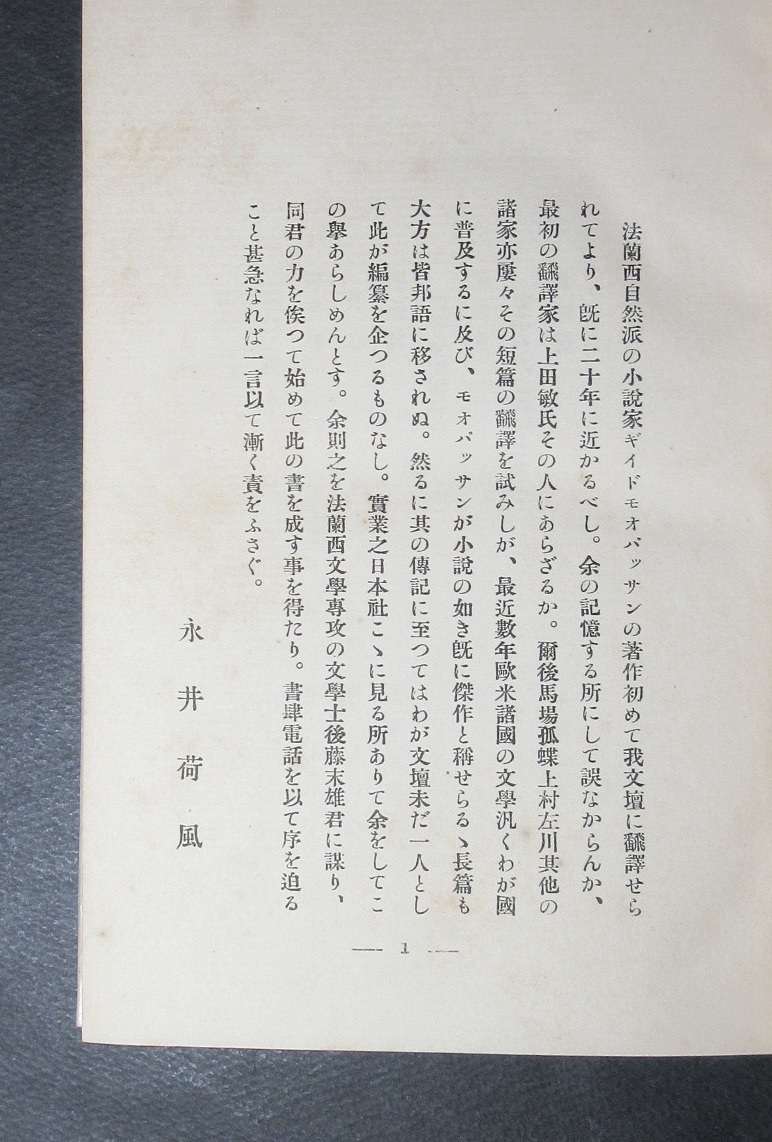 法蘭西自然派の小說家ギイドモオパッサンの著作初めて我文壇に飜譯せら
れてより、旣に二十年に近かるべし。余の記憶する所にして誤なからんか、
最初の飜譯家は上田敏氏その人にあらざるか。爾後馬場孤蝶上村左川其他の
諸家亦屢々その短篇の飜譯を試みしが、最近數年歐米諸國の文學汎くわが國
に普及するに及び、モオパッサンが小說の如き旣に傑作と稱せらるゝ長篇も
大方は皆邦語に移されぬ。然るに其の傳記に至つてはわが文壇未だ一人とし
て此が編纂を企つるものなし。實業之日本社こゝに見る所ありて余をしてこ
の擧あらしめんとす。余則之を法蘭西文學專攻の文學士後藤末雄君に謀り、
同君の力を俟つて始めて此の書を成す事を得たり。書肆電話を以て序を迫る
こと甚急なれば一言以て漸く責をふさぐ。
永井荷風
1